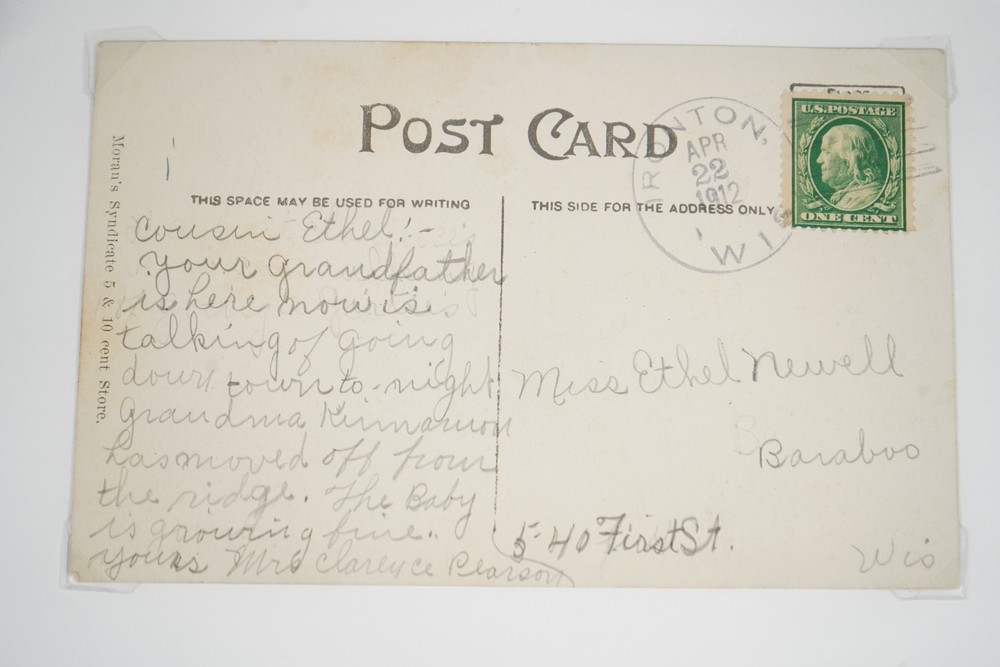 POST CARD
THIS SPACE MAY BE USED FOR WRITING
THIS SIDE FOR THE ADDRESS ONLY
IRONTON,
APR
22
1912
WI
U.S. POSTAGE
ONE CENT
Moran's Syndicate 5 & 10 cent Store.
Cousin Ethel!-
your grandfather
is here now is
talking of going
down town to-night
Grandma Kinnamon
has moved off from
the ridge. The Baby
is growing fine.
yours Mrs Clarence Pearson
Miss Ethel Newell
Baraboo
540 First St.
Wis